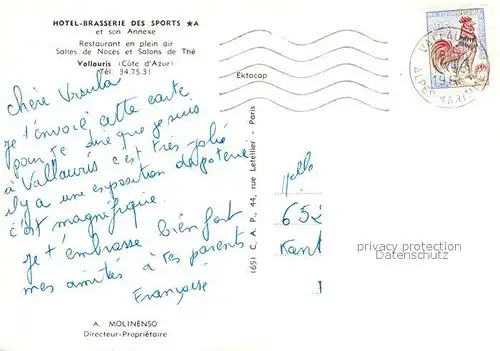 HOTEL-BRASSERIE DES SPORTS ★A
et son Annexe
Restaurant en plein air
Salles de Noces et Salons de Thé
Vallauris (Côte d'Azur)
Tél. 34.75.31
Ektacap
Chère Ursula
je t'envoie cette carte
pour te dire que je suis
à Vallauris c'est très joli
il y a une exposition de poterie
c'est magnifique.
Je t'embrasse bien fort
mes amitiés à tes parents
Françoise
A. MOLINENSO
Directeur-Propriétaire
(65) C. A. P., 44, rue Letellier - Paris
VALLAURIS
ALPES MARIT
Melle
652
Kant
privacy protection
Bartko-Reher-GmbH